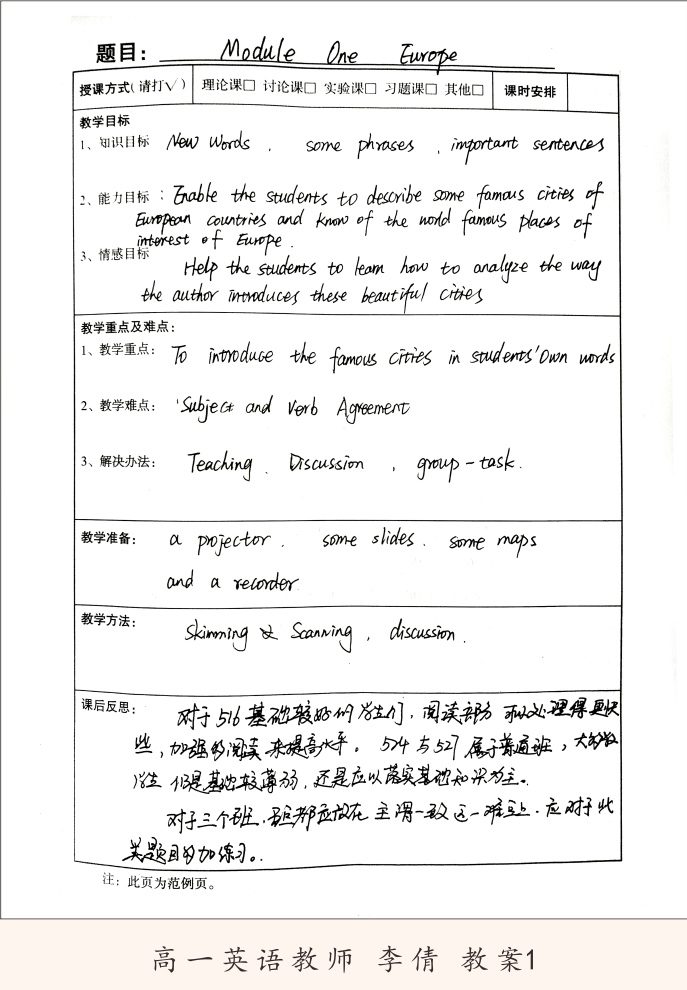 题目： Module One Europe
授课方式（请打√） 理论课□ 讨论课□ 实验课□ 习题课□ 其他□ 课时安排
教学目标
1、知识目标 New words . some phrases , important sentences
2、能力目标：Enable the students to describe some famous cities of
European countries and know of the world famous places of
interest of Europe.
3、情感目标
Help the students to learn how to analyze the way
the author introduces these beautiful cities
教学重点及难点：
1、教学重点： To introduce the famous cities in students' own words
2、教学难点： Subject and Verb Agreement
3、解决办法： Teaching . Discussion , group-task.
教学准备： a projector . some slides . some maps
and a recorder
教学方法：
Skimming & Scanning , discussion .
课后反思： 对于516基础较好的学生们，阅读部分可以处理得更快
些，加强阅读来提高水平。524与527属于普通班，大多数
学生仍是基础较薄弱，还是应以落实基础知识为主。
对于三个班，都应放在主谓一致这一难点上．应对于此
类题目多加练习。
注：此页为范例页。
高一英语教师 李倩 教案1